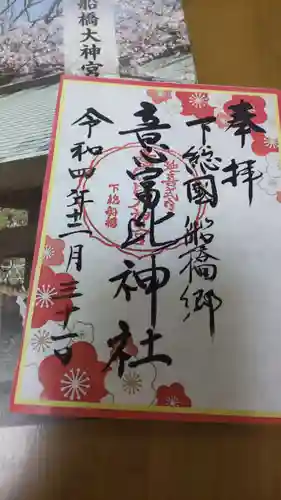 船橋大神宮
奉拝
下総國船橋郷
意富比神社
令和四年十二月三十一日